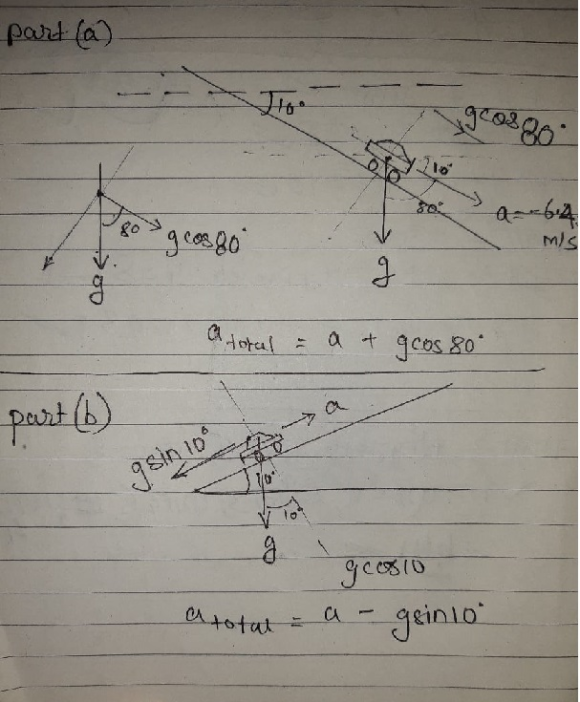 part (a)
10°
gcos80°
10°
80°
a = -6.4
m/s
g
80
gcos80°
g
a total = a + gcos80°
part (b)
a
gsin10°
10°
10°
g
gcos10
a total = a - gsin10°